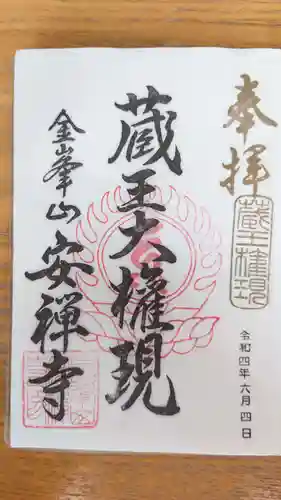 奉拝
蔵王権現
令和四年六月四日
蔵王大権現
金峯山安禅寺